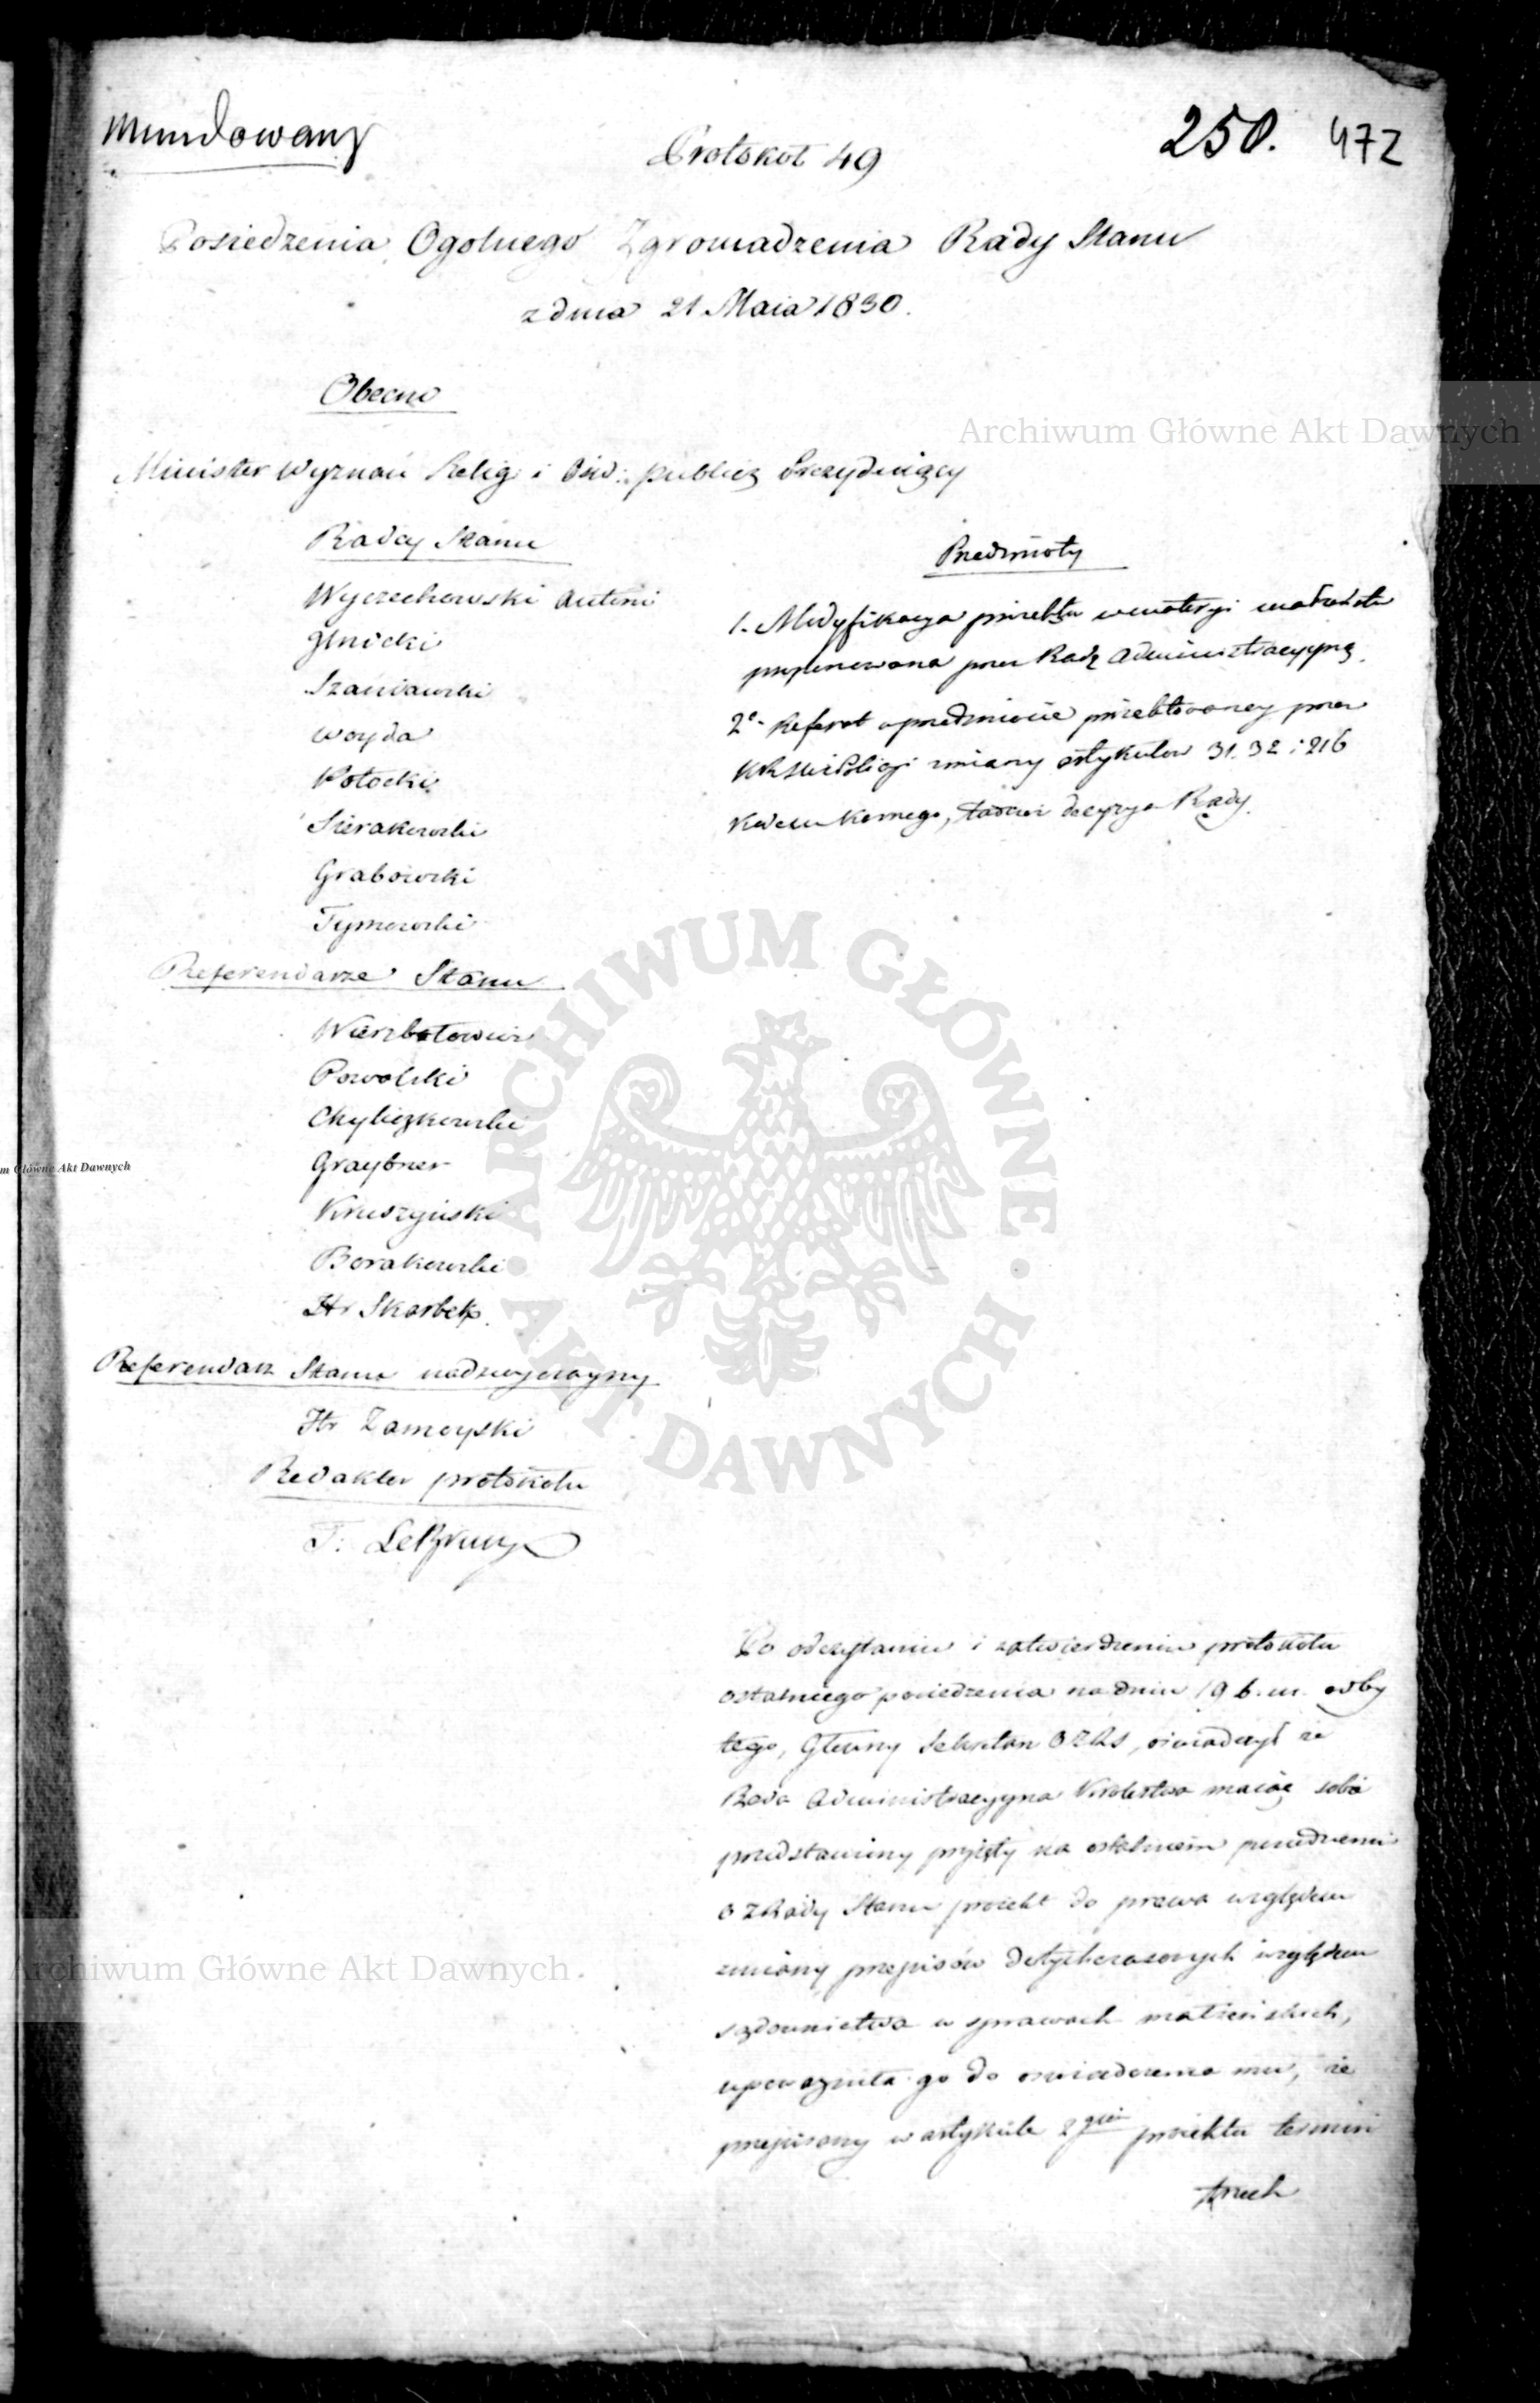 mundowany
250. 472
Protokół 49
Posiedzenia Ogolnego Zgromadzenia Rady Stanu
z dnia 21 Maia 1830.
Obecni
Minister Wyznań Relig: i Ośw: publicz Prezyduiący
Radcy Stanu
Wyczechowski Antoni
Szaniawski
Woyda
Potocki
Sierakowski
Grabowski
Tymowski
Referendarze Stanu
Wierzbołowicz
Powolski
Chyliczkowski
Graybner
Kruszyński
Borakowski
Hr Skarbek
Referendarz Stanu nadzwyczayny
Hr Zamoyski
Redaktor protokołu
T: LeBrun
Przedmioty
1. Modyfikacya proiektu w materyi małżeństw
proponowana przez Radę Administracyyną.
2° Referat o przedmiocie proiektowaney przez
zmiany artykułow 31. 32 i 216
Kodexu Karnego, decyzya Rady.
Po odczytaniu i zatwierdzeniu protokołu
ostatniego posiedzenia na dniu 19 b. m. odby
tego, Główny Sekretarz OZRS, oświadczył że
Rada Administracyyna Królestwa maiąc sobie
przedstawiony przyięty na ostatniem posiedzeniu
OZRady Stanu proiekt do prawa względem
zmiany przepisów dotychczasowych względem
sądownictwa w sprawach małżeńskich,
upoważniła go do oświadczenia mu, że
przepisany w artykule 2gim proiektu termin
trzech
Archiwum Główne Akt Dawnych
Archiwum Główne Akt Dawnych
m Główne Akt Dawnych
ARCHIWUM GŁÓWNE · AKT DAWNYCH ·